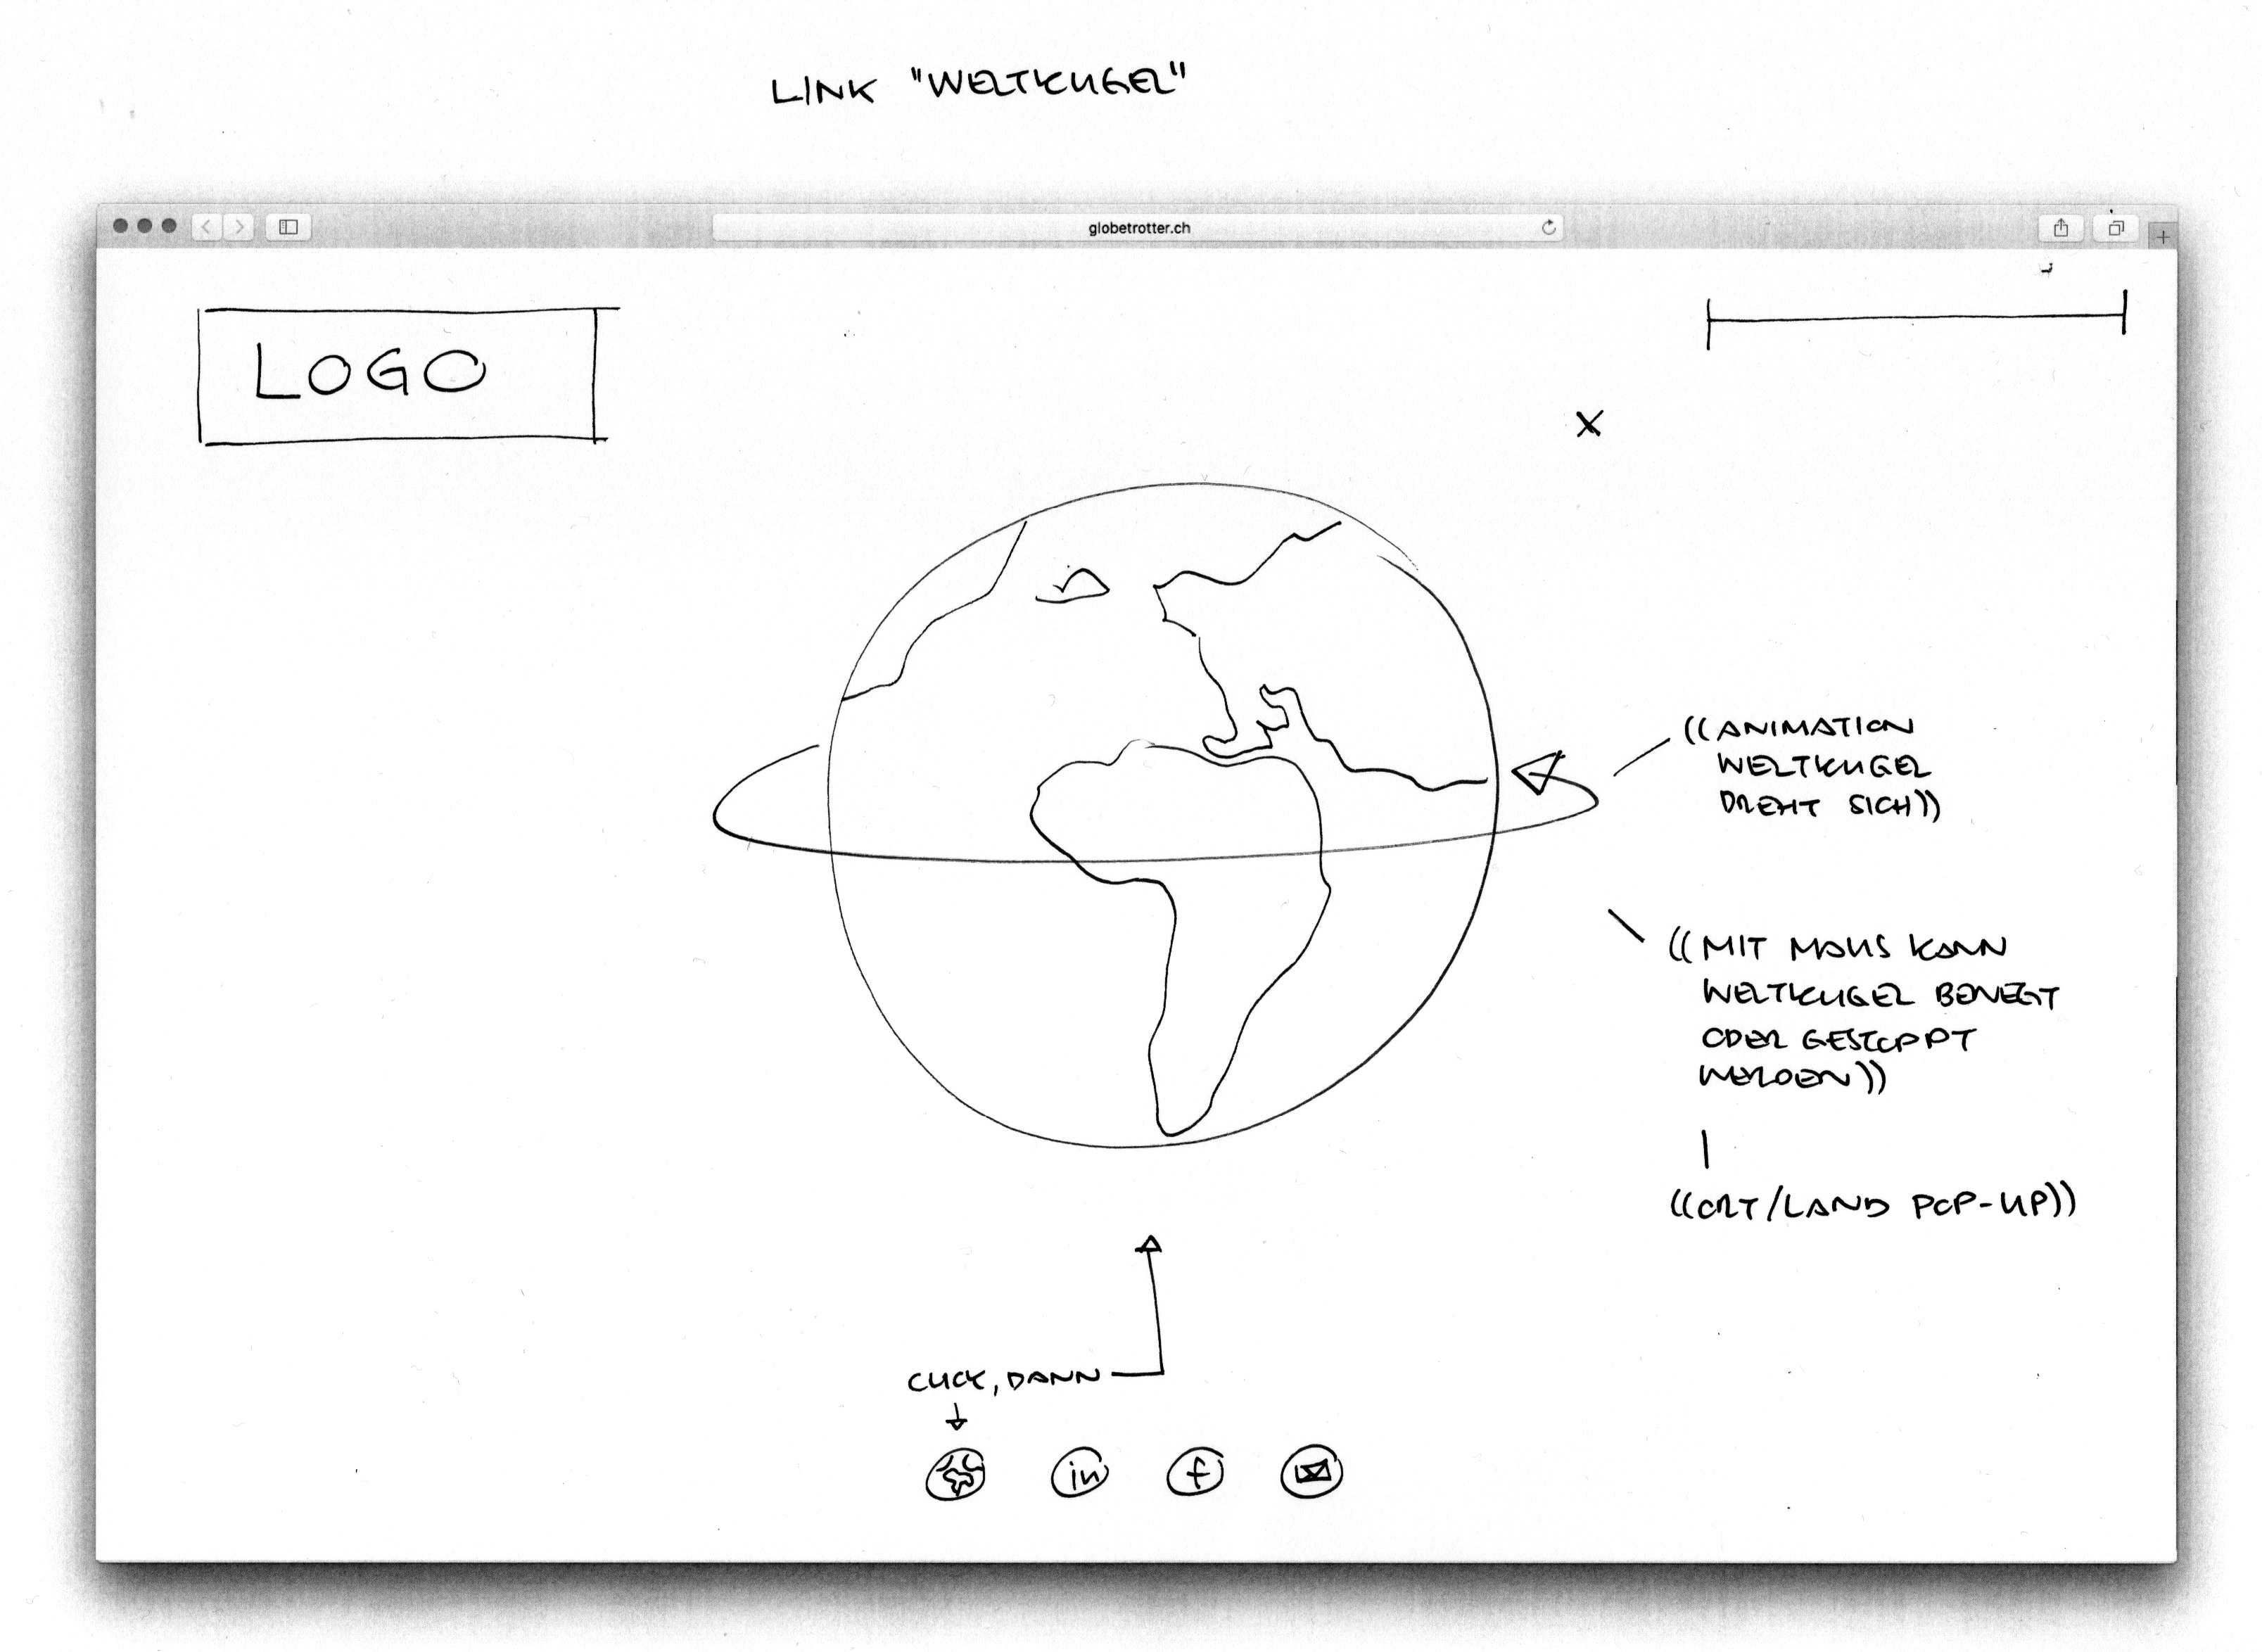 LINK "WELTKUGEL"
globetrotter.ch
LOGO
X
((ANIMATION
WELTKUGEL
DREHT SICH))
((MIT MAUS KANN
WELTKUGEL BEWEGT
ODER GESTOPPT
WERDEN))
((ORT/LAND POP-UP))
CLICK, DANN
in f